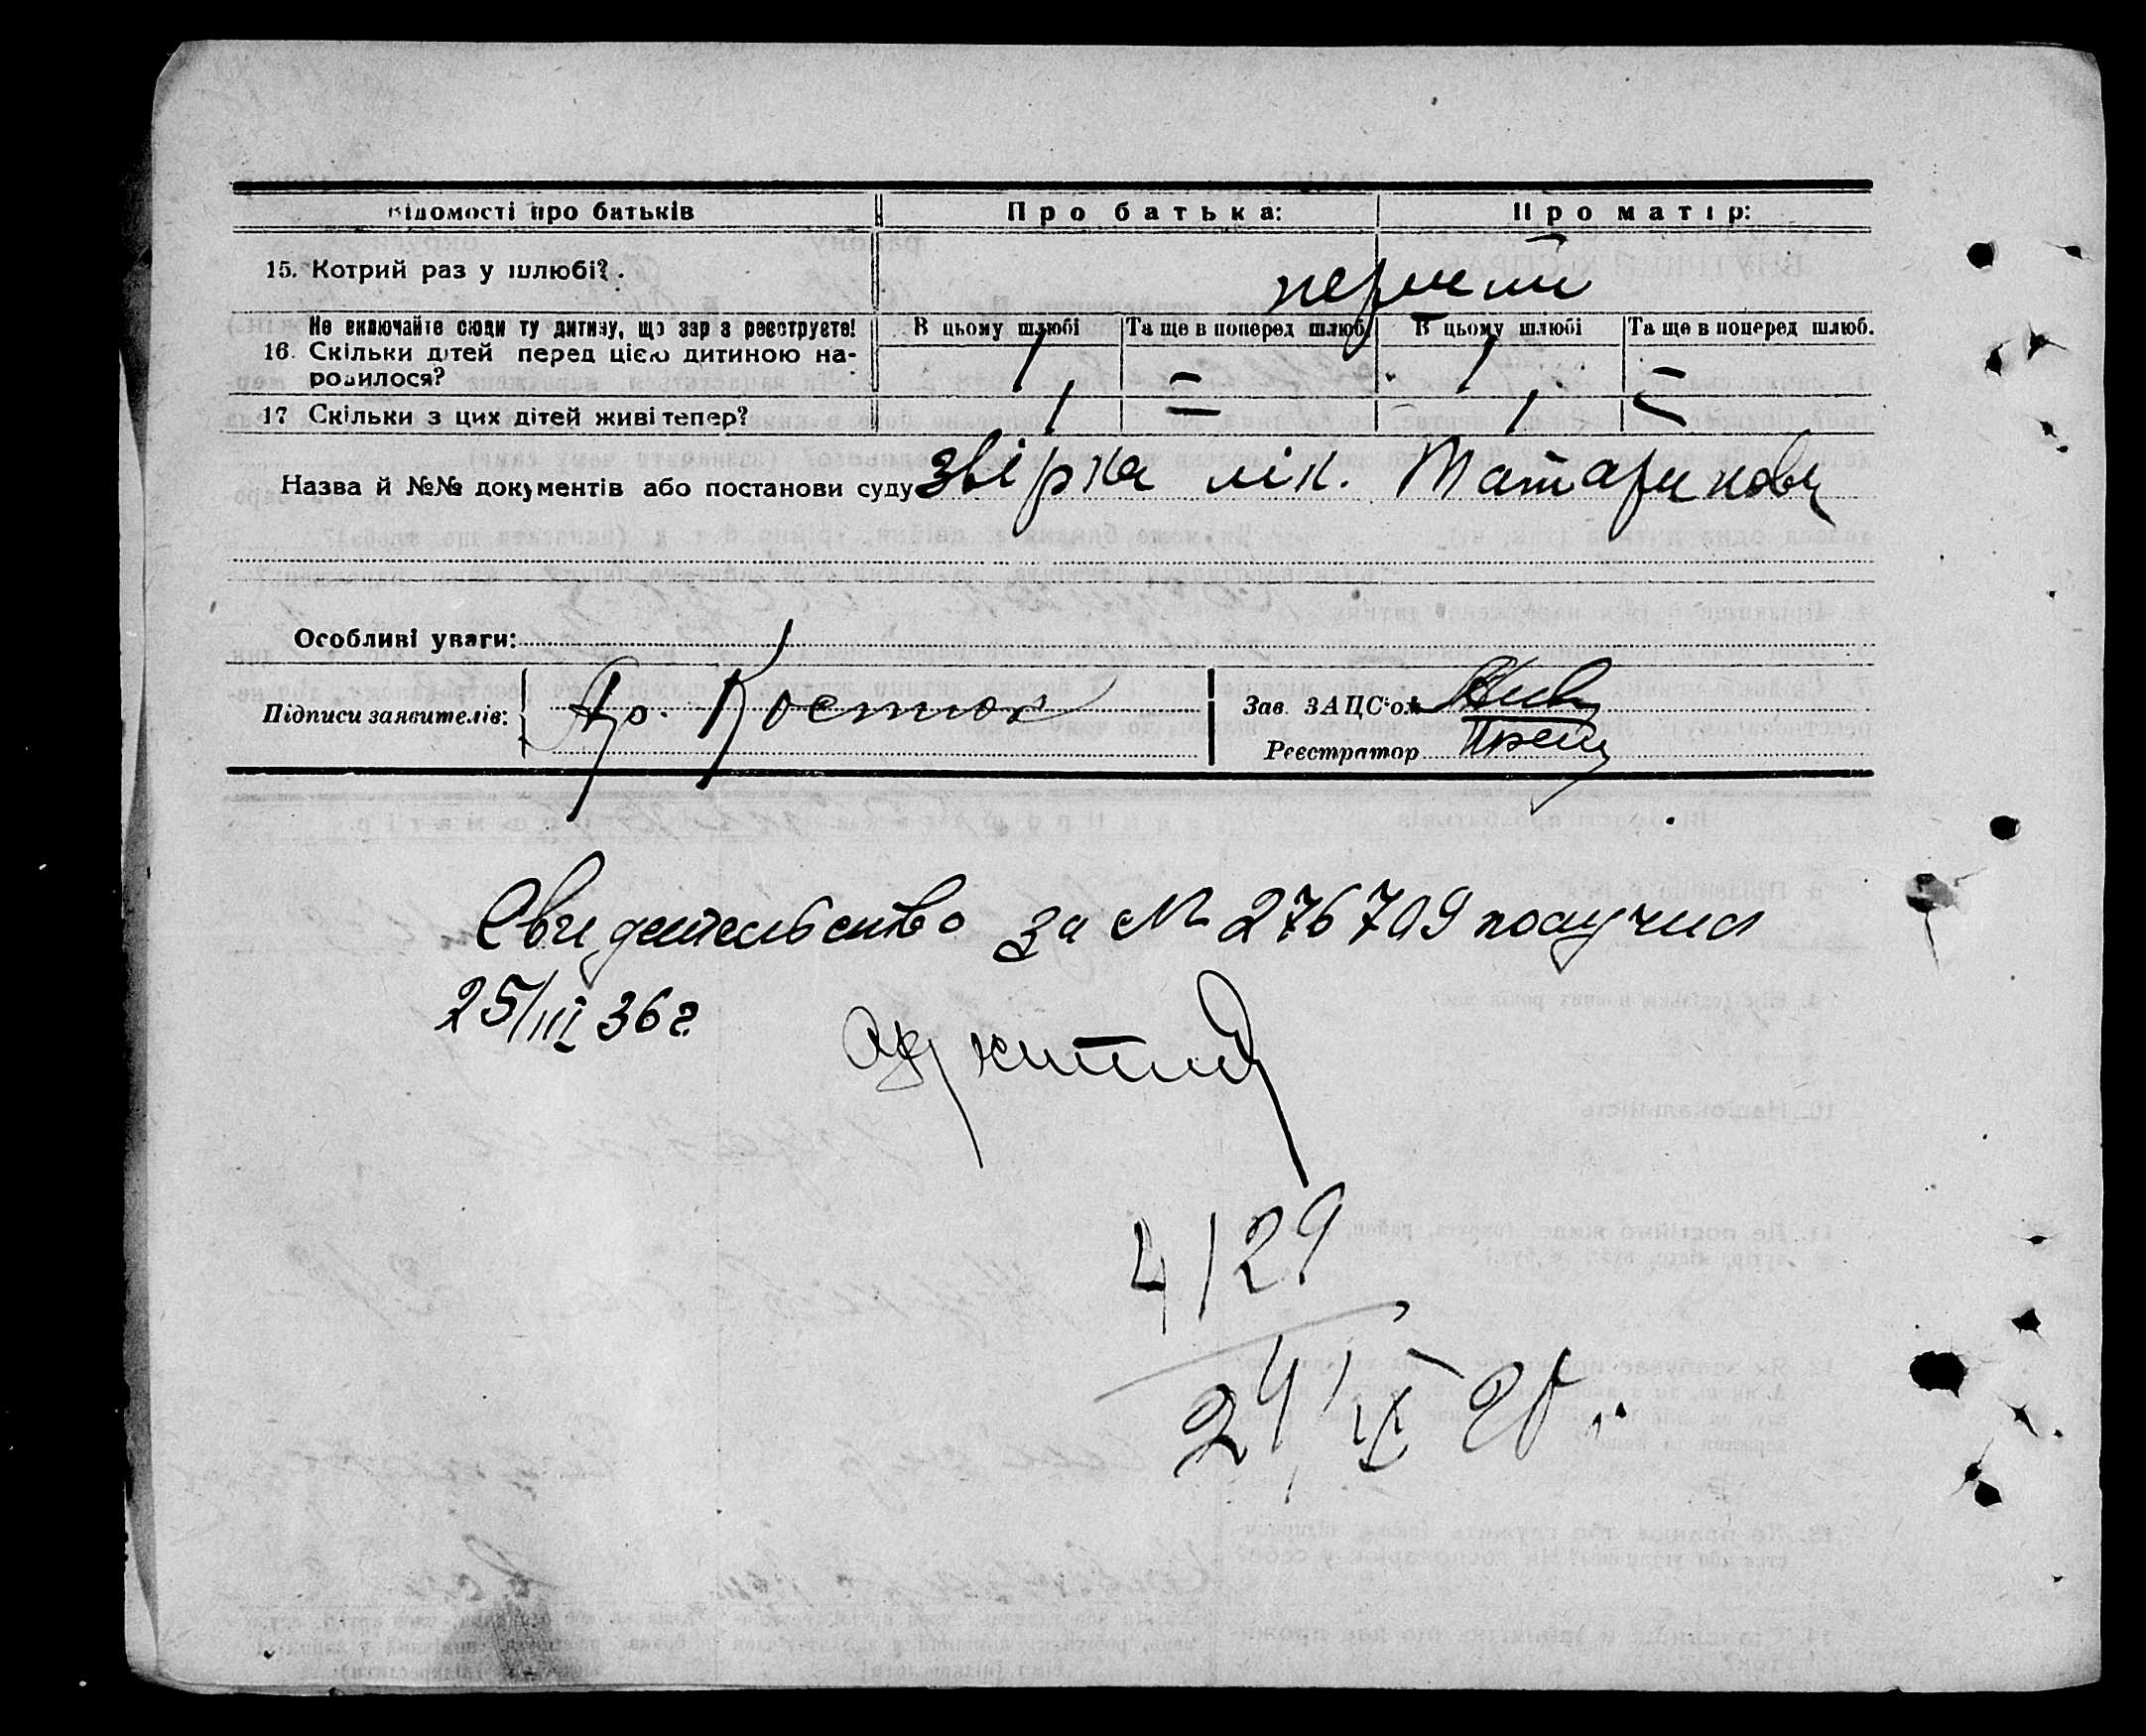 Відомості про батьків Про батька: Про матір:
15. Котрий раз у шлюбі? перший
Не включайте сюди ту дитину, що зараз реєструєте! В цьому шлюбі Та ще в поперед шлюб. В цьому шлюбі Та ще в поперед шлюб.
16. Скільки дітей перед цією дитиною на-
родилося? 1 — 1 —
17 Скільки з цих дітей живі тепер? 1 — 1 —
Назва й №№ документів або постанови суду звірка лік. Татаринову
Особливі уваги:
Підписи заявителів: Костюк Зав. ЗАЦС'ом
Реєстратор
Свидетельство за № 276709 получил
25/III 36 г.
4129